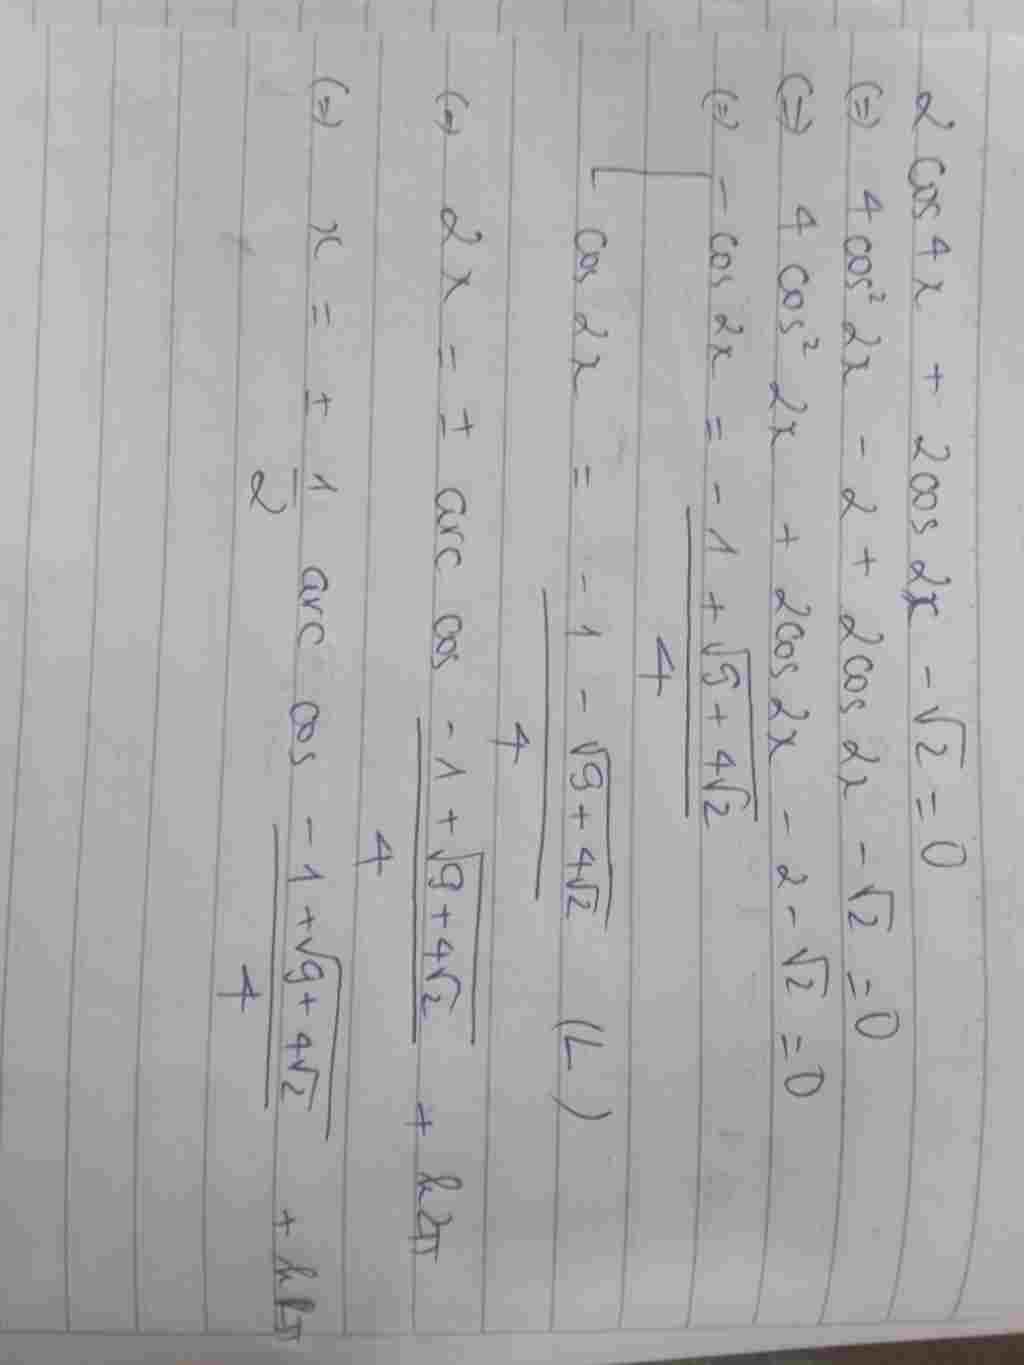 2 cos 4x + 2cos 2x - √2 = 0
(=) 4 cos² 2x - 2 + 2cos 2x - √2 = 0
(=) 4 cos² 2x + 2cos 2x - 2 - √2 = 0
(=) [ - cos 2x = (-1 + √(9 + 4√2)) / 4
cos 2x = (-1 - √(9 + 4√2)) / 4 (L)
(=) 2x = ± arc cos (-1 + √(9 + 4√2)) / 4 + k2π
(=) x = ± 1/2 arc cos (-1 + √(9 + 4√2)) / 4